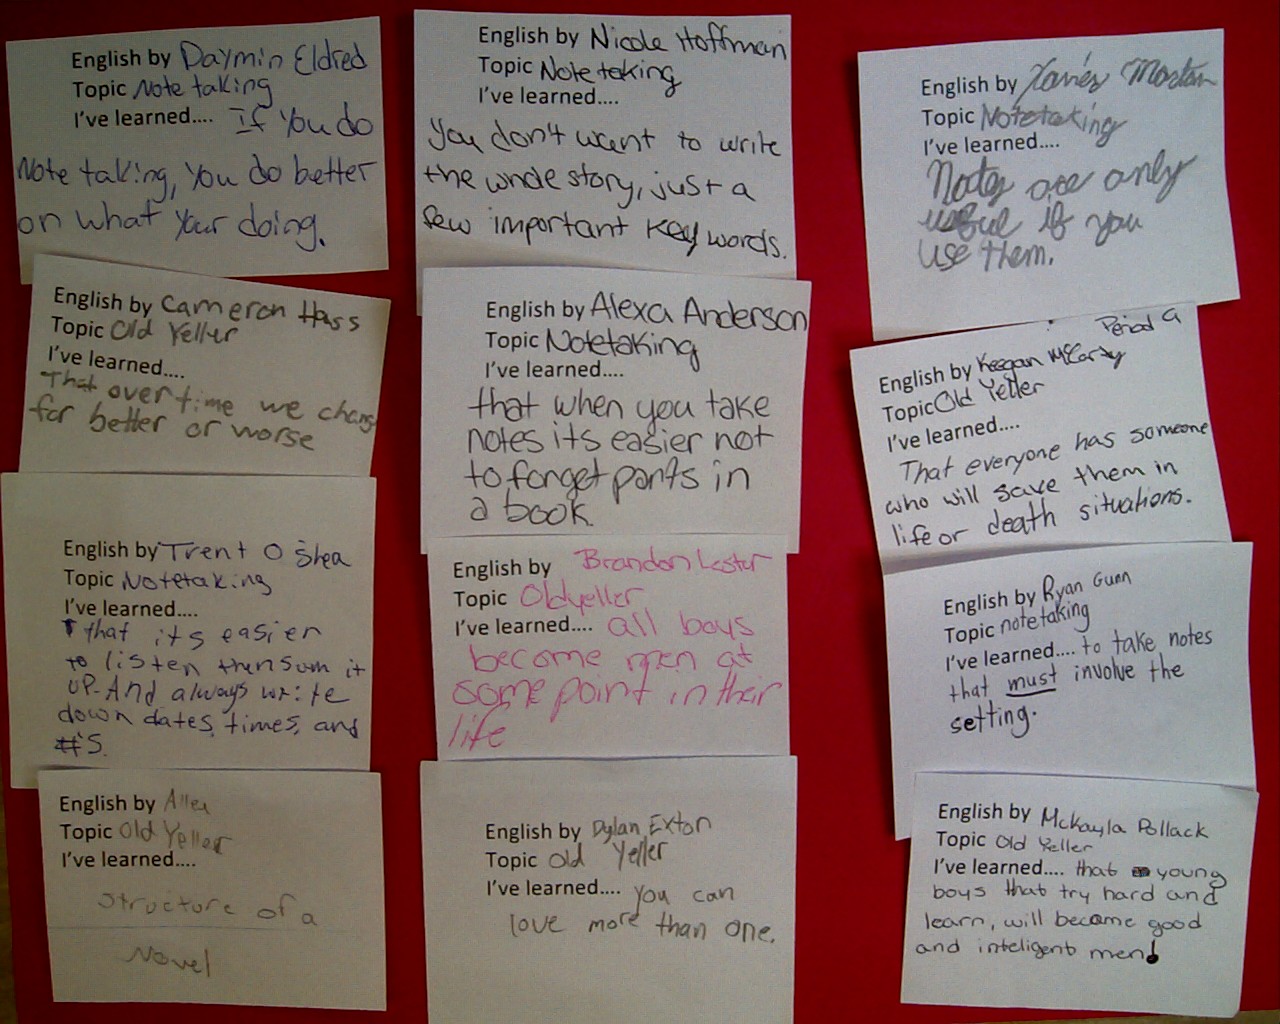 English by Daymin Eldred
Topic Note taking
I've learned.... If You do
Note taking, You do better
on what Your doing.
English by Cameron Hass
Topic Old Yeller
I've learned....
That over time we change
for better or worse
English by Trent O Shea
Topic Notetaking
I've learned....
that its easier
to listen then sum it
UP. And always write
down dates, times, and
#'s.
English by Allen
Topic Old Yeller
I've learned....
Structure of a
Novel
English by Nicole Hoffman
Topic Note taking
I've learned....
You don't want to write
the whole story, just a
few important key words.
English by Alexa Anderson
Topic Notetaking
I've learned....
that when you take
notes its easier not
to forget parts in
a book.
English by Brandon Lester
Topic Oldyeller
I've learned.... all boys
become men at
some point in their
life
English by Dylan Exton
Topic Old Yeller
I've learned.... You can
love more than one.
English by Xavier Morton
Topic Notetaking
I've learned....
Notes are only
useful if you
use them.
Period
English by Keegan McCarty
Topic Old Yeller
I've learned....
That everyone has someone
who will save them in
life or death situations.
English by Ryan Gunn
Topic notetaking
I've learned.... to take notes
that must involve the
setting.
English by Mckayla Pollack
Topic Old Yeller
I've learned.... that young
boys that try hard and
learn, will become good
and inteligent men!